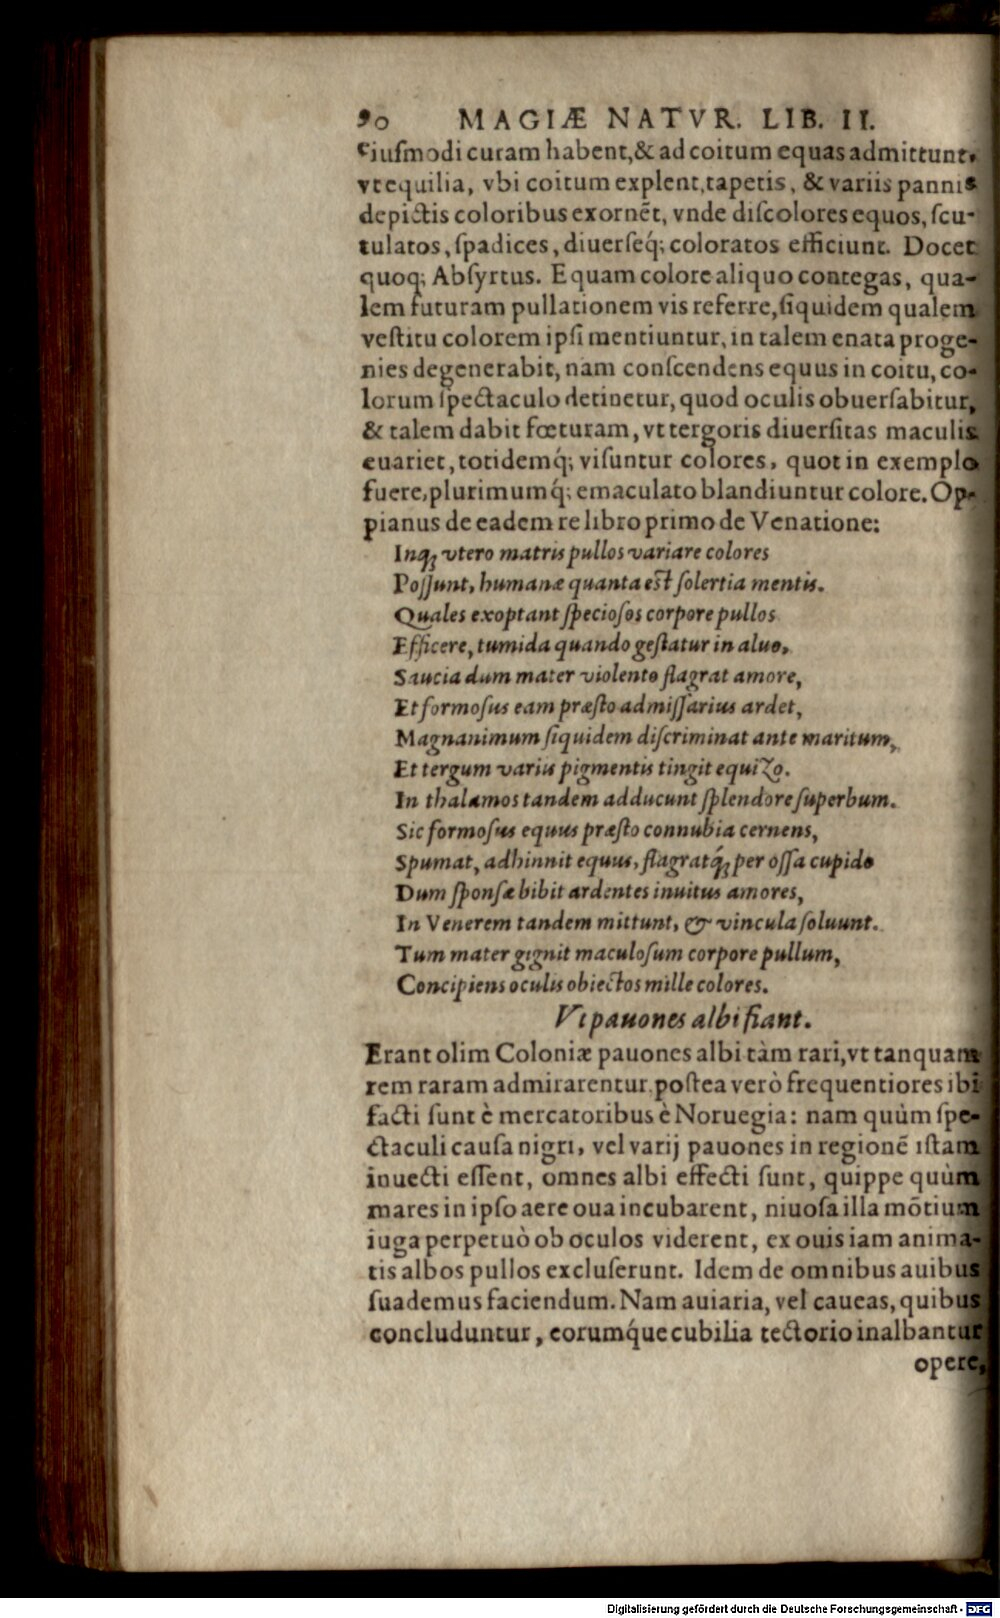 90 MAGIÆ NATVR. LIB. II.
eiuſmodi curam habent, & ad coitum equas admittunt,
vt equilia, vbi coitum explent, tapetis, & variis pannis
depictis coloribus exornēt, vnde diſcolores equos, ſcu-
tulatos, ſpadices, diuerſeq́; coloratos efficiunt. Docet
quoq; Abſyrtus. Equam colore aliquo contegas, qua-
lem futuram pullationem vis referre, ſiquidem qualem
veſtitu colorem ipſi mentiuntur, in talem enata proge-
nies degenerabit, nam conſcendens equus in coitu, co-
lorum ſpectaculo detinetur, quod oculis obuerſabitur,
& talem dabit fœturam, vt tergoris diuerſitas maculis
euariet, totidemq́; viſuntur colores, quot in exemplo
fuere, plurimumq́; emaculato blandiuntur colore. Op-
pianus de eadem re libro primo de Venatione:
Inq; vtero matris pullos variare colores
Poſſunt, humanæ quanta eſt ſolertia mentis.
Quales exoptant ſpecioſos corpore pullos
Efficere, tumida quando geſtatur in aluo,
Saucia dum mater violento flagrat amore,
Et formoſus eam præſto admiſſarius ardet,
Magnanimum ſiquidem diſcriminat ante maritum,
Et tergum variis pigmentis tingit equiʒo.
In thalamos tandem adducunt ſplendore ſuperbum.
Sic formoſus equus præſto connubia cernens,
Spumat, adhinnit equus, flagratq́; per oſſa cupido
Dum ſponſæ bibit ardentes inuitus amores,
In Venerem tandem mittunt, & vincula ſoluunt.
Tum mater gignit maculoſum corpore pullum,
Concipiens oculis obiectos mille colores.
Vt pauones albi fiant.
Erant olim Coloniæ pauones albi tàm rari, vt tanquam
rem raram admirarentur, poſtea verò frequentiores ibi
facti ſunt è mercatoribus è Noruegia: nam quùm ſpe-
ctaculi cauſa nigri, vel varij pauones in regionē iſtam
inuecti eſſent, omnes albi effecti ſunt, quippe quùm
mares in ipſo aere oua incubarent, niuoſa illa mōtium
iuga perpetuò ob oculos viderent, ex ouis iam anima-
tis albos pullos excluſerunt. Idem de omnibus auibus
ſuademus faciendum. Nam auiaria, vel caueas, quibus
concluduntur, eorumq́ue cubilia tectorio inalbantur
opere,
Digitalisierung gefördert durch die Deutsche Forschungsgemeinschaft - DFG